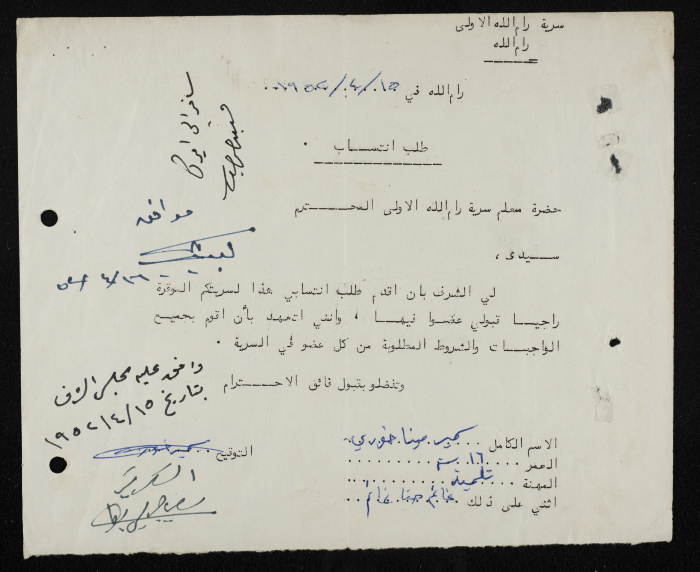 سرية رام الله الاولى
رام الله
رام الله في ١٥/٤/١٩٥٢
طلب انتساب
حضرة معلم سرية رام الله الاولى المحترم
سيدي ،
لي الشرف بان اقدم طلب انتسابي هذا لسريتكم الموقرة
راجيا قبولي عضوا فيها ، وانني اتعهد بأن اقوم بجميع
الواجبات والشروط المطلوبة من كل عضو في السرية .
وتفضلو بقبول فائق الاحترام
الاسم الكامل خوري
العمر ١٦ سنة
المهنة
اثني على ذلك غانم حنا غانم
التوقيع
سافر الى
موافق
وافق عليه مجلس الشرف
بتاريخ ١٥/٤/١٩٥٢
السكرتير